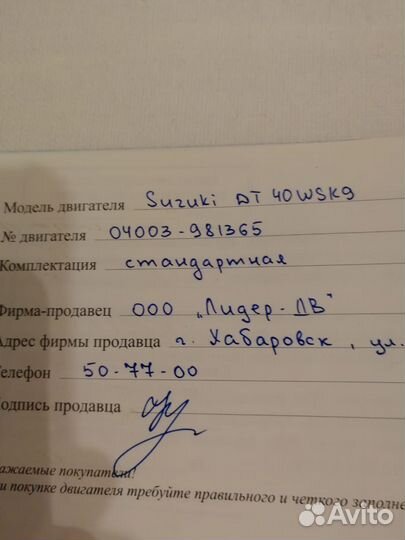 Модель двигателя Suzuki DT 40WSK9
№ двигателя 04003-981365
Комплектация стандартная
Фирма-продавец ООО „Лидер-ДВ"
Адрес фирмы продавца г. Хабаровск, ул.
Телефон 50-77-00
Подпись продавца
ажаемые покупатели!
и покупке двигателя требуйте правильного и четкого зсполне
Avito